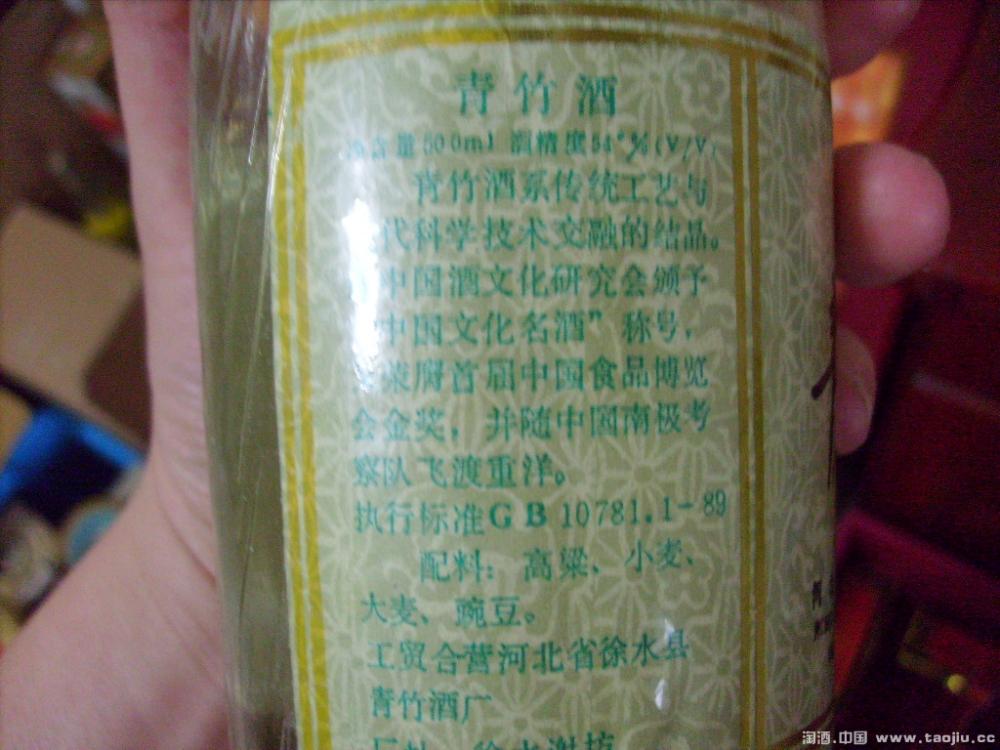 青竹酒
含量500ml 酒精度54°%(V/V)
青竹酒系传统工艺与
代科学技术交融的结晶。
中国酒文化研究会颁予
中国文化名酒”称号,
荣膺首届中国食品博览
会金奖,并随中国南极考
察队飞渡重洋。
执行标准GB 10781.1-89
配料:高粱、小麦、
大麦、豌豆。
工贸合营河北省徐水县
青竹酒厂
淘酒.中国 www.taojiu.cc